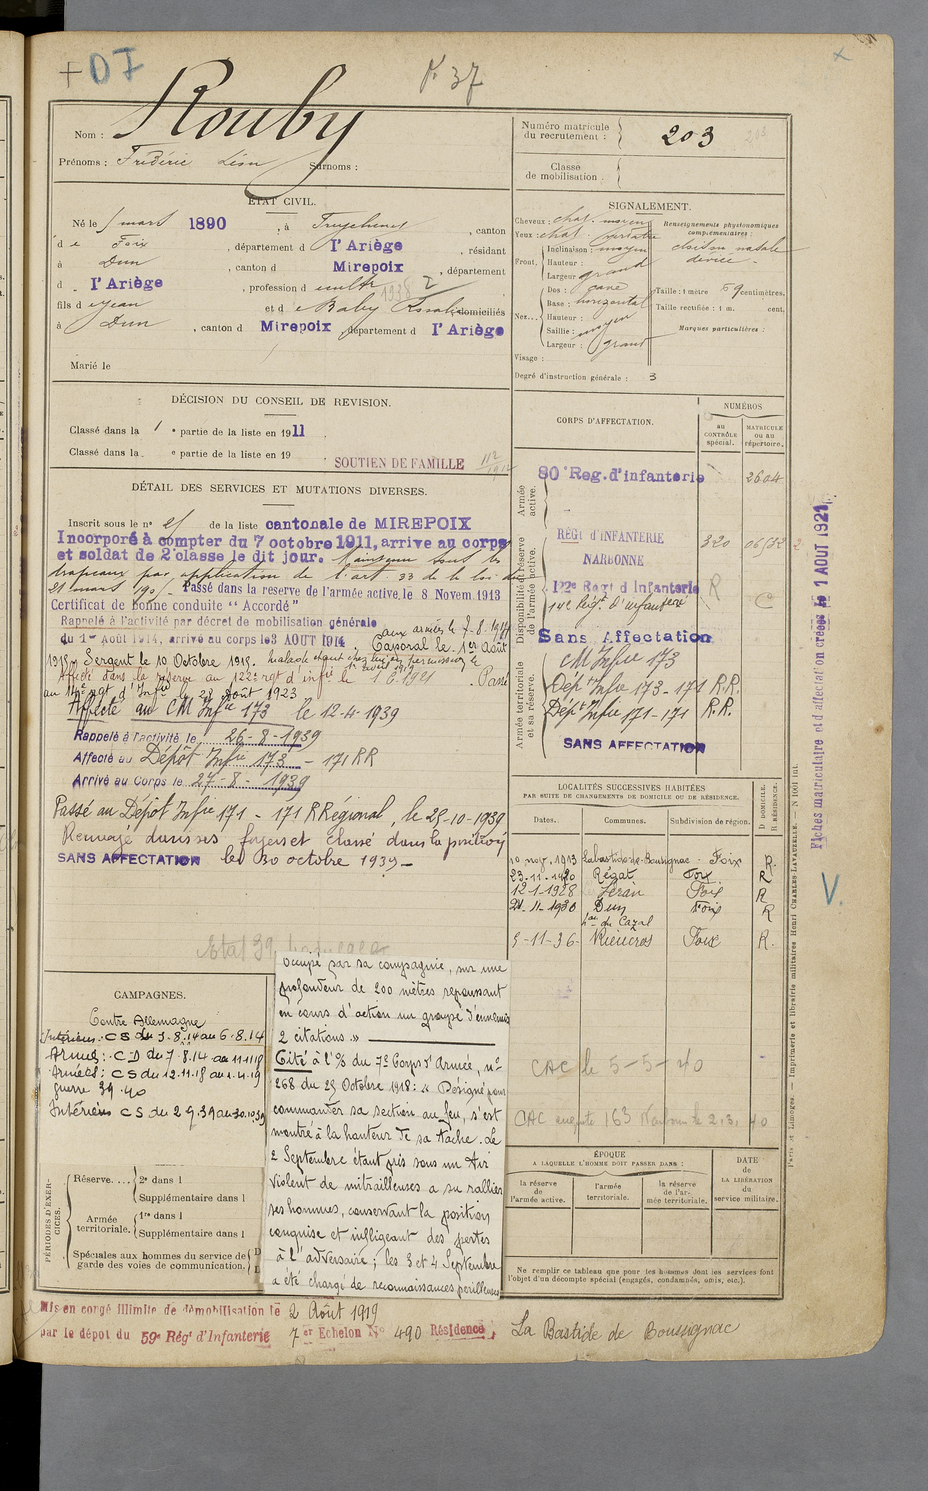 + DI
P. 37
Nom : Rouby
Prénoms : Frédéric Léon Surnoms :
Numéro matricule du recrutement : 203
Classe de mobilisation :
ÉTAT CIVIL.
Né le 1 mars 1890, à , canton
d e Foix, département d l'Ariège, résidant
à Dun, canton d Mirepoix, département
d l'Ariège, profession d cultr
fils d e Jean et d e Baby domiciliés
à Dun, canton d Mirepoix, département d l'Ariège
Marié le
SIGNALEMENT.
Cheveux : chat. moyen
Yeux : chat.
Front. Inclinaison : moyen
Hauteur :
Largeur : grand
Nez... Dos : cave
Base : horizontal
Hauteur :
Saillie : moyen
Largeur : grand
Visage :
Renseignements physionomiques complémentaires :
cloison nasale déviée -
Taille : 1 mètre 59 centimètres.
Taille rectifiée : 1 m. cent.
Marques particulières :
Degré d'instruction générale : 3
DÉCISION DU CONSEIL DE REVISION.
Classé dans la 1 e partie de la liste en 1911
Classé dans la e partie de la liste en 19
SOUTIEN DE FAMILLE
DÉTAIL DES SERVICES ET MUTATIONS DIVERSES.
Inscrit sous le n° de la liste cantonale de MIREPOIX
Incorporé à compter du 7 octobre 1911, arrive au corps
et soldat de 2e classe le dit jour. Maintenu sous les
drapeaux par application de l'art 33 de la loi du
21 mars 1905. Passé dans la réserve de l'armée active, le 8 Novem. 1913
Certificat de bonne conduite "Accordé"
Rappelé à l'activité par décret de mobilisation générale
du 1er Août 1914, arrivé au corps le 3 AOUT 1914 aux armées le 7.8.1914
Caporal le 1er Août
1915. Sergent le 10 Octobre 1915.
Affecté dans la réserve au 122e rgt d'infie le 1.6.1921. Passé
au 14e rgt d'Infie le 28 Août 1923
Affecté au CM Infie 173 le 12-4-1939
Rappelé à l'activité le 26-8-1939
Affecté au Dépôt Infie 173 - 171 RR
Arrivé au Corps le 27-8-1939
Passé au Dépôt Infie 171 - 171 R Régional, le 25-10-1939
Renvoyé dans ses foyers et classé dans la position
SANS AFFECTATION le 30 octobre 1939 -
CORPS D'AFFECTATION.
NUMÉROS
au CONTRÔLE spécial.
MATRICULE ou au répertoire.
Armée active.
80e Reg. d'infanterie 2604
Disponibilité et réserve de l'armée active.
RÉGt d'INFANTERIE NARBONNE 320
122e Régt d'Infanterie R C
Armée territoriale et sa réserve.
Sans Affectation
CM Infie 173
Dépôt Infie 173-171 R.R.
Dépôt Infie 171-171 R.R.
SANS AFFECTATION
LOCALITÉS SUCCESSIVES HABITÉES
PAR SUITE DE CHANGEMENTS DE DOMICILE OU DE RÉSIDENCE.
Dates. Communes. Subdivision de région. D DOMICILE. R RÉSIDENCE.
10 nov. 1913 Labastide-de-Bousignac Foix R.
23-11-1920 Régat Foix R
12-1-1928 Léran Foix R
21-11-1930 Dun Foix R
5-11-36 Rieucros Foix R.
CAC le 5-5-40
CAMPAGNES.
Contre Allemagne
Intérieur : CS du 3.8.14 au 6.8.14
Armées : CD du 7.8.14 au 11.11.18
Armées : CS du 12.11.18 au 1.4.19
guerre 39-40
Intérieur CS du 27.8.39 au 30.10.39
occupé par sa compagnie, sur une
profondeur de 200 mètres repoussant
en cours d'action un groupe d'ennemis
2 citations »
Cité à l'% du 7e Corps d'Armée, n°
268 du 29 Octobre 1918 : « Désigné pour
commander sa section au feu, s'est
montré à la hauteur de sa tâche. Le
2 Septembre étant pris sous un tir
violent de mitrailleuses a su rallier
ses hommes, conservant la position
conquise et infligeant des pertes
à l'adversaire ; les 3 et 4 Septembre
a été chargé de reconnaissances périlleuses
PÉRIODES D'EXERCICES.
Réserve.... 2e dans l
Supplémentaire dans l
Armée territoriale. 1re dans l
Supplémentaire dans l
Spéciales aux hommes du service de garde des voies de communication.
ÉPOQUE
A LAQUELLE L'HOMME DOIT PASSER DANS :
la réserve de l'armée active.
l'armée territoriale.
la réserve de l'armée territoriale.
DATE de LA LIBÉRATION du service militaire.
Ne remplir ce tableau que pour les hommes dont les services font
l'objet d'un décompte spécial (engagés, condamnés, omis, etc.).
Mis en congé illimité de démobilisation le 2 Août 1919
par le dépôt du 59e Régt d'Infanterie 7e Echelon N° 490 Résidence, La Bastide de Bousignac
Fiches matriculaire et d'affectation créées le 1 AOUT 1921.
V.
Paris et Limoges. — Imprimerie et librairie militaires Henri CHARLES-LAVAUZELLE. — N